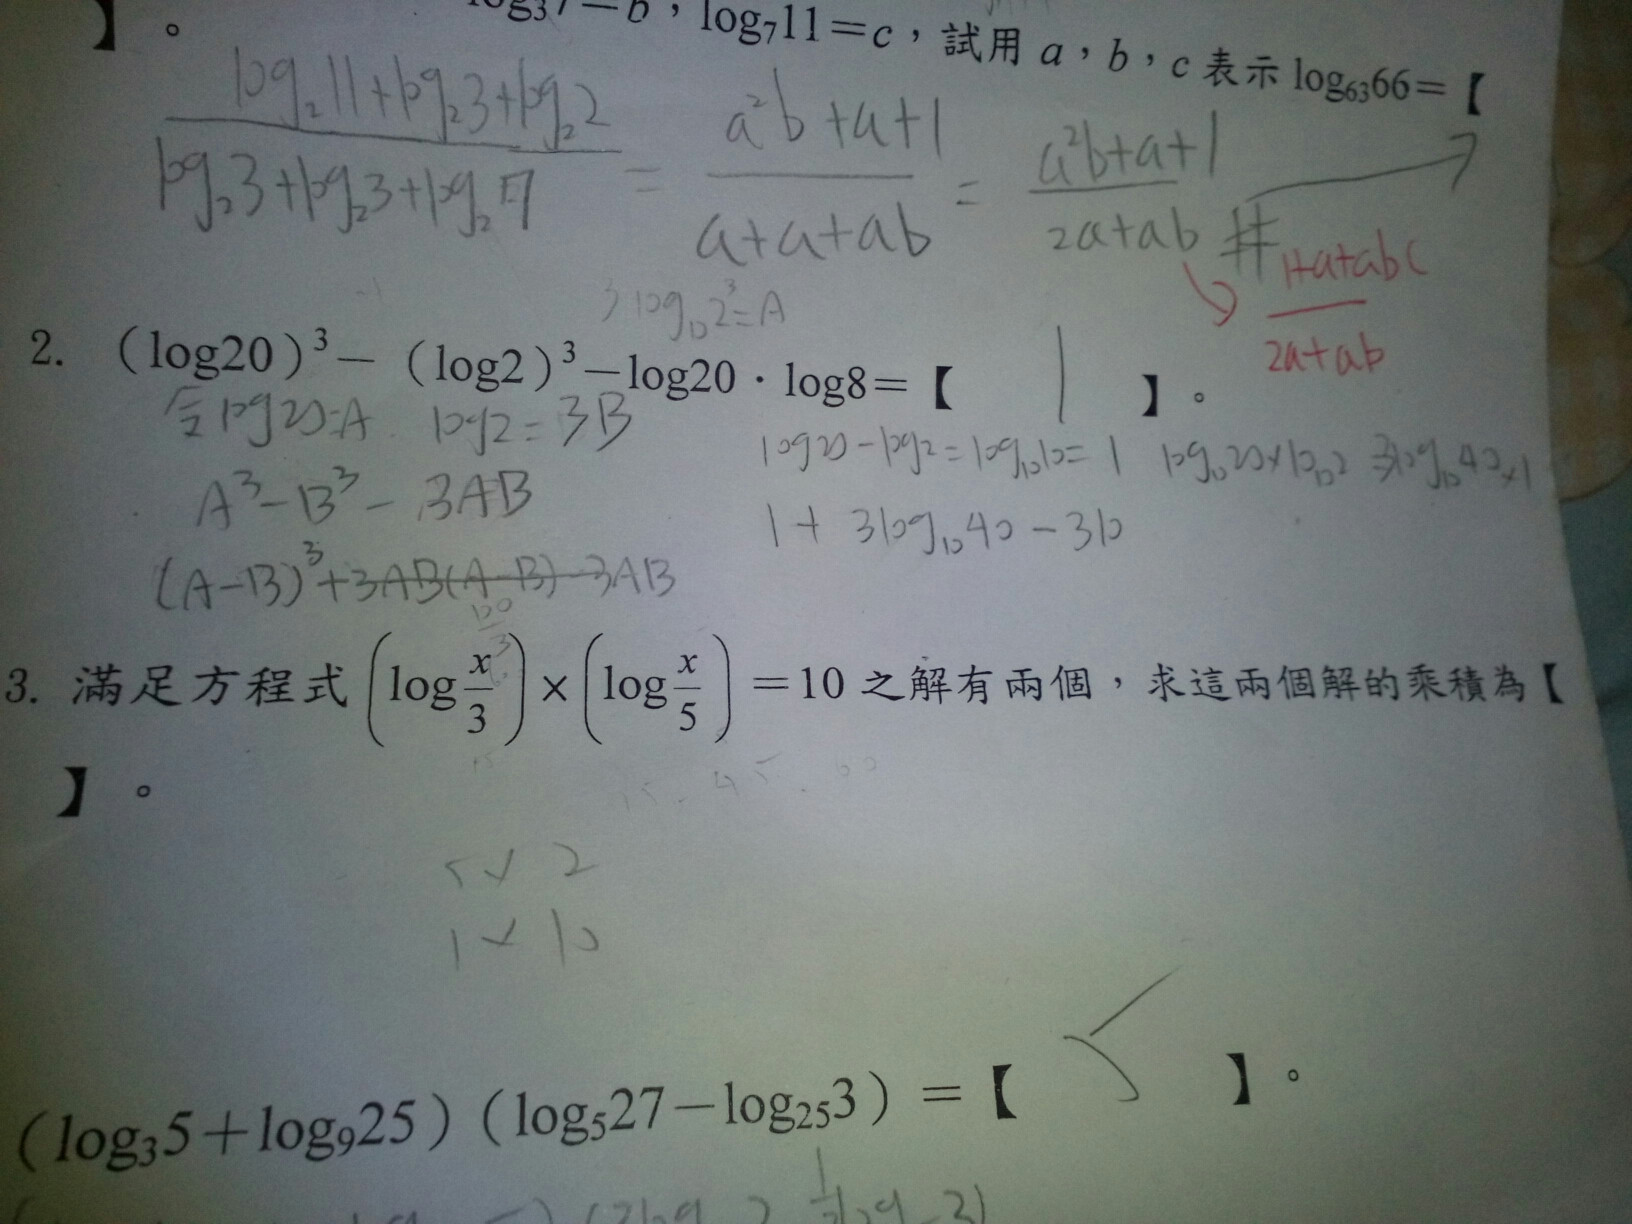 】。 log₃7=b,log₇11=c,試用 a,b,c 表示 log₆₃66=【
log₂11+log₂3+log₂2 / log₂3+log₂3+log₂7 = a²b+a+1 / a+a+ab = a²b+a+1 / 2a+ab #
1+a+abc / 2a+ab
3log₁₀2³=A
2. (log20)³-(log2)³-log20·log8=【 1 】。
令log20=A log2=3B
log20-log2=log₁₀10=1
A³-B³-3AB
1+3log₁₀40-310
(A-B)³+3AB(A-B)-3AB
3. 滿足方程式(log x/3)×(log x/5)=10 之解有兩個,求這兩個解的乘積為【
】。
5×2
1×10
(log₃5+log₉25)(log₅27-log₂₅3)=【 5 】。